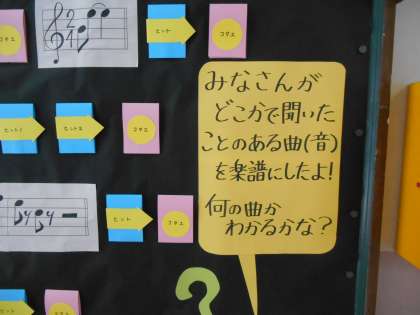 コタエ
ヒント
コタエ
みなさんが
どこかで聞いた
ことのある曲(音)
を楽譜にしたよ!
何の曲か
わかるかな?
ヒント1
ヒント2
コタエ
ヒント
コタエ
ヒント
コタエ
?